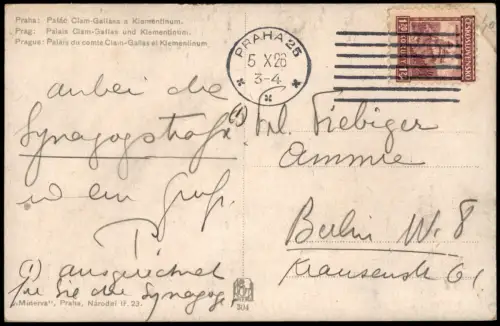 Praha: Palác Clam-Gallasa a Klementinum.
Prag: Palais Clam-Gallas und Klementinum.
Prague: Palais du comte Clam-Gallas et Klementinum.
PRAHA 25
5 X 26
3-4
ČESKOSLOVENSKO
anbei die
Synagogstraße (1)
u ein Gruß.
(1) ausgerechnet
für Sie die Synagoge
Frl. Fiebiger
Berlin W. 8
Krausenstr 61
"Minerva", Praha, Národní tř. 23.
304